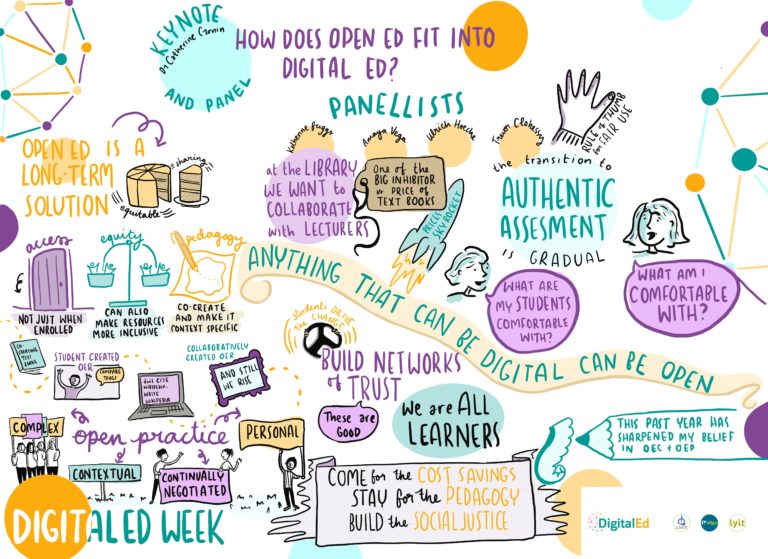 KEYNOTE
Dr Catherine Cronin
AND PANEL
HOW DOES OPEN ED FIT INTO
DIGITAL ED?
PANELLISTS
Ulrich Hoeche
Trevor Clohessy
RULE OF THUMB
for FAIR USE
OPEN ED IS A
LONG-TERM
SOLUTION
sharing
equitable
at the LIBRARY
WE WANT to
COLLABORATE
with LECTURERS
One of the
BIG INHIBITOR
is PRICE of
TEXT BOOKS
PRICES
SKY ROCKET
the transition to
AUTHENTIC
ASSESMENT
is GRADUAL
access
NOT JUST WHEN
ENROLLED
equity
CAN ALSO
MAKE RESOURCES
MORE INCLUSIVE
pedagogy
CO-CREATE
AND MAKE IT
CONTEXT SPECIFIC
ANYTHING THAT CAN BE DIGITAL CAN BE OPEN
WHAT ARE
MY STUDENTS
COMFORTABLE
WITH?
WHAT AM I
COMFORTABLE
WITH?
students DRIVE
the CHANGE
CO-
CREATING
TEXT
BOOKS
STUDENT CREATED
OER
COMPARE
TOOLS
COLLABORATIVELY
CREATED OER
don't CITE
WIKIPEDIA.
WRITE
WIKIPEDIA
AND STILL
WE RISE
BUILD NETWORKS
of TRUST
These are
GOOD
We are ALL
LEARNERS
COMPLEX
open practice
PERSONAL
CONTEXTUAL
CONTINUALLY
NEGOTIATED
THIS PAST YEAR HAS
SHARPENED MY BELIEF
IN OEC + OEP
COME for the COST SAVINGS
STAY for the PEDAGOGY
BUILD the SOCIAL JUSTICE
DIGITAL ED WEEK
DigitalEd
lyit